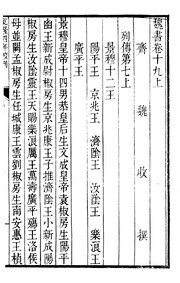 魏書卷十九上
齊　魏　收　撰
列傳第七上
景穆十二王
陽平王　京兆王　濟陰王　汝陰王　樂浪王
廣平王
景穆皇帝十四男恭皇后生文成皇帝袁椒房生陽平
幽王新成尉椒房生京兆康王子推濟陰王小新成陽
椒房生汝陰靈王天賜樂浪厲王萬壽廣平殤王洛侯
母並闕孟椒房生任城康王雲劉椒房生南安惠王楨